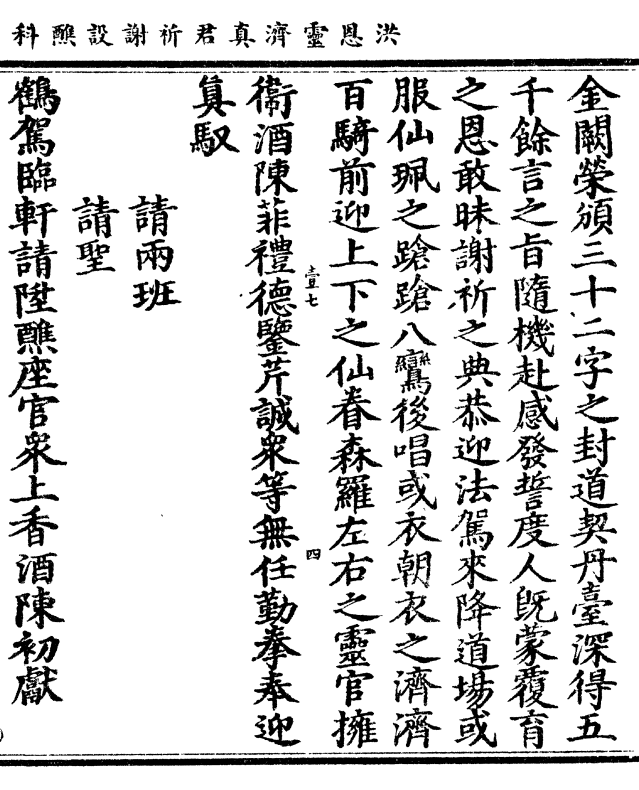 洪恩靈濟真君祈謝設醮科
金闕榮頒三十二字之封道契丹臺深得五
千餘言之旨隨機赴感發誓度人既蒙覆育
之恩敢昧謝祈之典恭迎法駕來降道場或
服仙珮之蹌蹌八鸞後唱或衣朝衣之濟濟
百騎前迎上下之仙眷森羅左右之靈官擁
壹七
四
衞酒陳菲禮德鑒芹誠衆等無任勤拳奉迎
眞馭
請兩班
請聖
鶴駕臨軒請陞醮座官衆上香酒陳初獻